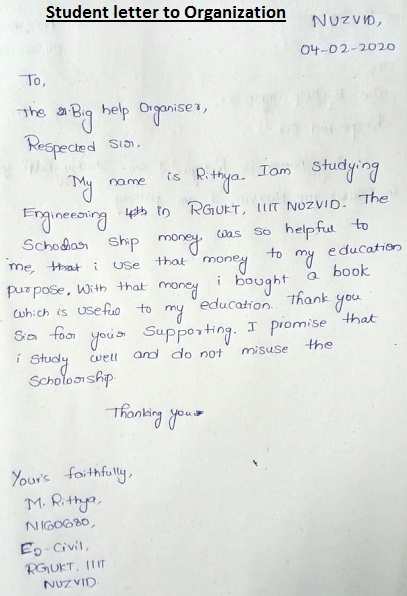 Student letter to Organization
NUZVID,
04-02-2020
To,
The Big help Organiser,
Respected Sir,
My name is Rithya. Iam studying
Engineering in RGUKT, IIIT NUZVID. The
Scholar ship money was so helpful to
me, that i use that money to my education
purpose. With that money i bought a book
which is useful to my education. Thank you
Sir for your Supporting. I promise that
i study well and do not misuse the
Scholorship.
Thanking you
Your's faithfully,
M. Rithya,
N160680,
E2-Civil,
RGUKT. IIIT
NUZVID.